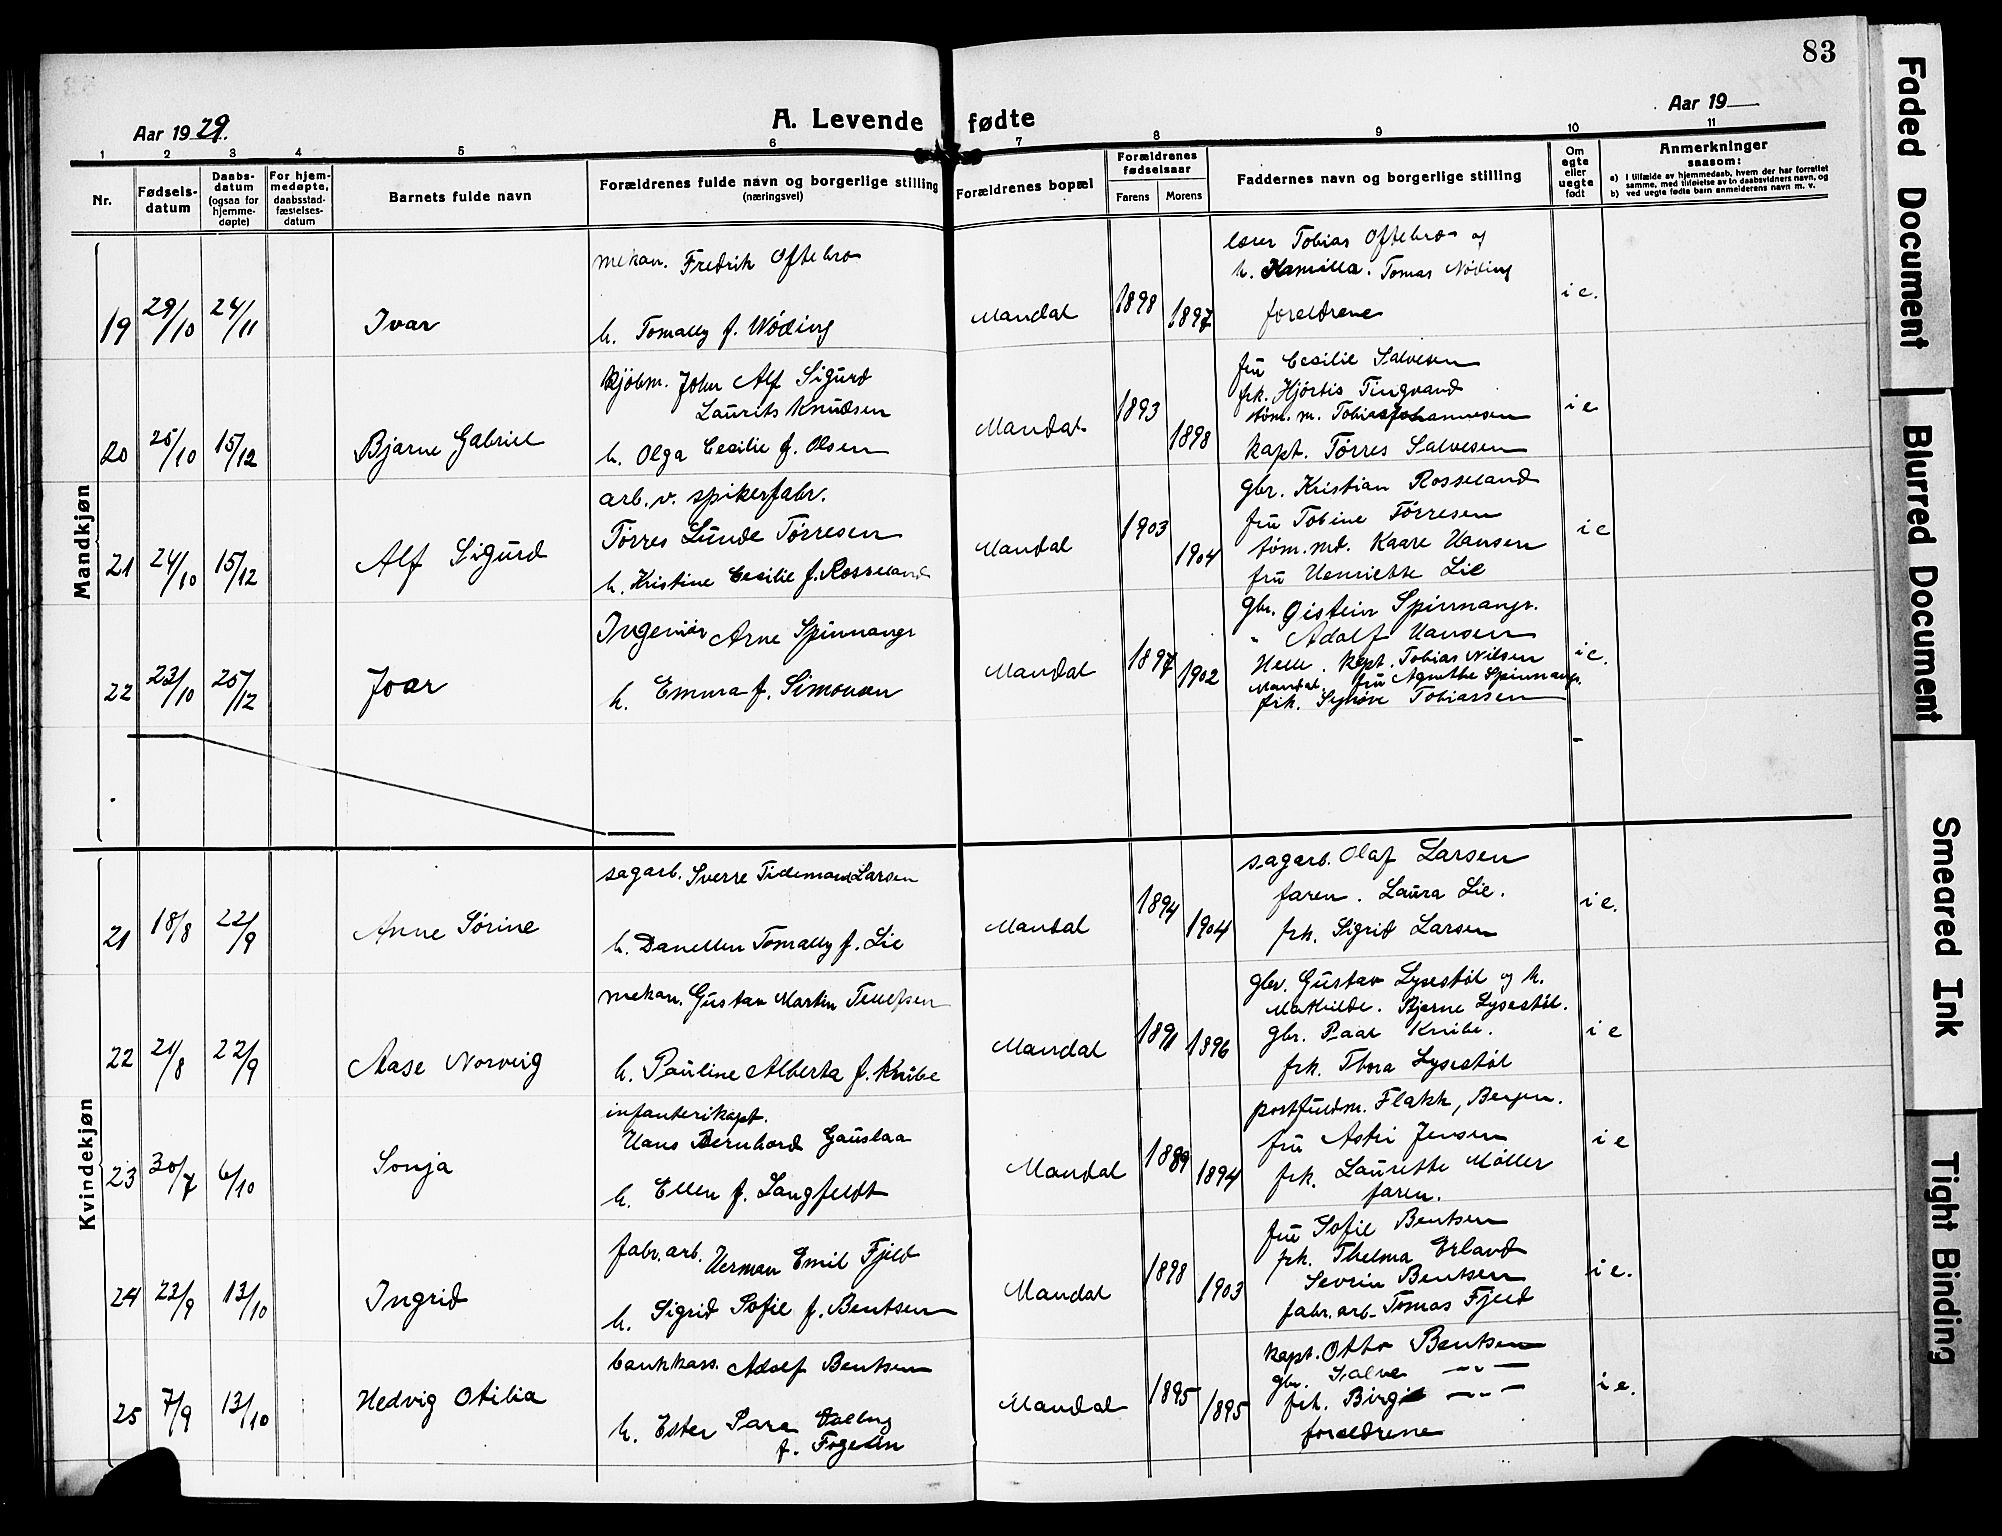 83
Aar 1929.
A. Levende fødte
Aar 19
1 2 3 4 5 6 7 8 9 10 11
Nr.
Fødsels-datum
Daabs-datum (ogsaa for hjemme-døpte)
For hjem-medøpte, daabsstad-fæstelses-datum
Barnets fulde navn
Forældrenes fulde navn og borgerlige stilling (næringsvei)
Forældrenes bopæl
Forældrenes fødselsaar
Farens Morens
Faddernes navn og borgerlige stilling
Om egte eller uegte født
Anmerkninger
saasom:
a) I tilfælde av hjemmedaab, hvem der har forrettet samme, med tilføielse av to daabsvidners navn, og
b) ved uegte fødte barn anmelderens navn m. v.
Mandkjøn
19 29/10 24/11 Ivar
mekan. Fredrik Oftebro
h. Tomally f. Nöding
Mandal 1898 1897
lærer Tobias Oftebro og
h. Kamilla. Tomas Nöding
foreldrene
i e.
20 25/10 15/12 Bjarne Gabriel
kjöbm. John Alf Sigurd
Laurits Knudsen
h. Olga Cecilie f. Olsen
Mandal 1893 1898
fru Cecilie Salvesen
frk. Hjördis Tingvand
töm. m. Tobias Johannesen
kapt. Törres Salvesen
i e
21 24/10 15/12 Alf Sigurd
arb. v. spikerfabr.
Törres Lunde Törresen
h. Kristine Cecilie f. Rosseland
Mandal 1903 1904
gbr. Kristian Rosseland
fru Tobine Törresen
töm. md. Kaare Hansen
fru Henriette Lie
i e
22 23/10 25/12 Joar
Ingeniör Arne Spinnangr
h. Emma f. Simonsen
Mandal 1897 1902
gbr. Öistein Spinnangr.
" Adolf Hansen
Helle. kapt. Tobias Nilsen
Mandal. fru Agnethe Spinnangr.
frk. Synöve Tobiassen
i e.
Kvindekjøn
21 18/8 22/9 Anne Sörine
sagarb. Sverre Tidemand Larsen
h. Danellen Tomally f. Lie
Mandal 1894 1904
sagarb. Olaf Larsen
faren. Laura Lie.
frk. Sigrid Larsen
i e.
22 21/8 22/9 Aase Norveig
mekan. Gustav Martin Tellefsen
h. Pauline Alberta f. Knibe
Mandal 1891 1896
gbr. Gustav Lysestöl og h.
Mathilde. Bjarne Lysestöl.
gbr. Paal Knibe.
frk. Thora Lysestöl
i e
23 30/7 6/10 Sonja
infanterikapt.
Hans Bernhard Gauslaa
h. Ellen f. Langfeldt
Mandal 1889 1894
postfuldm. Flakk, Bergen.
fru Astri Jensen
frk. Laurette Möller
faren.
i e
24 22/9 13/10 Ingrid
fabr. arb. Herman Emil Fjeld
h. Sigrid Sofie f. Bentsen
Mandal 1898 1903
fru Sofie Bentsen
frk. Thelma Erland
Sevrin Bentsen
fabr. arb. Tomas Fjeld
i e.
25 7/9 13/10 Hedvig Otilia
bankkass. Adolf Bentsen
h. Ester Para
f.
Mandal 1895 1895
kapt. Otto Bentsen
gbr. Salve — " —
frk. Birgit — " —
foreldrene
i e.
Faded Document
Blurred Document
Smeared Ink
Tight Binding